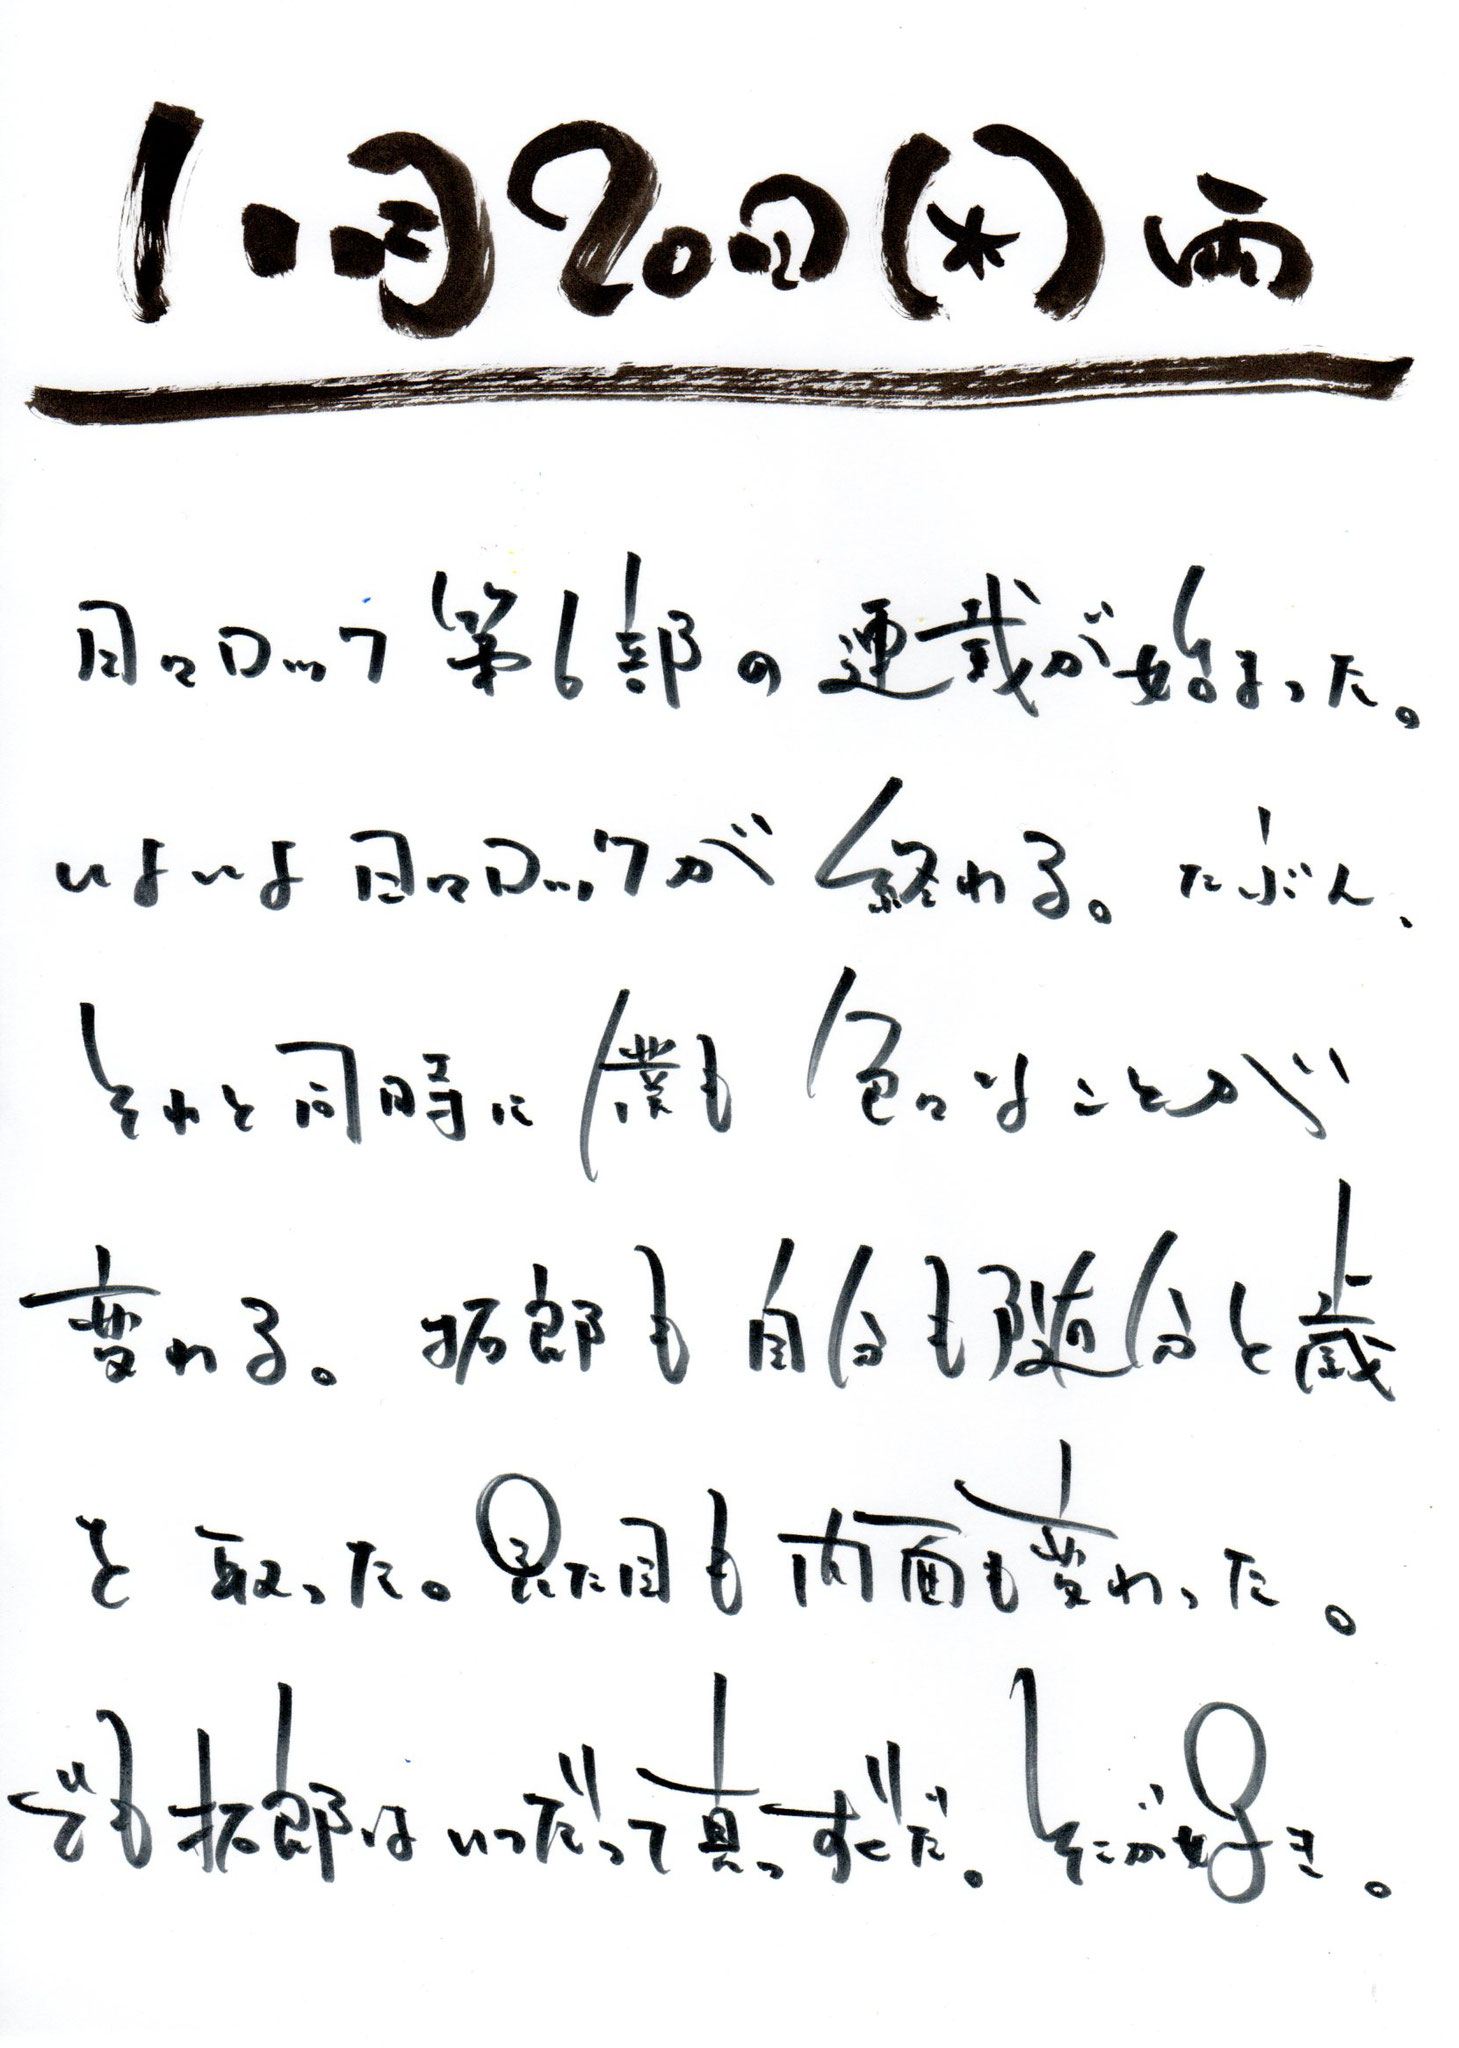 11月20日(水) 雨
日々ロック第6部の連載が始まった。
いよいよ日々ロックが終わる。たぶん、
それと同時に僕も色々なことが
変わる。拓郎も自分も随分と歳
を取った。見た目も内面も変わった。
でも拓郎はいつだって真っすぐだ。そこが好き。